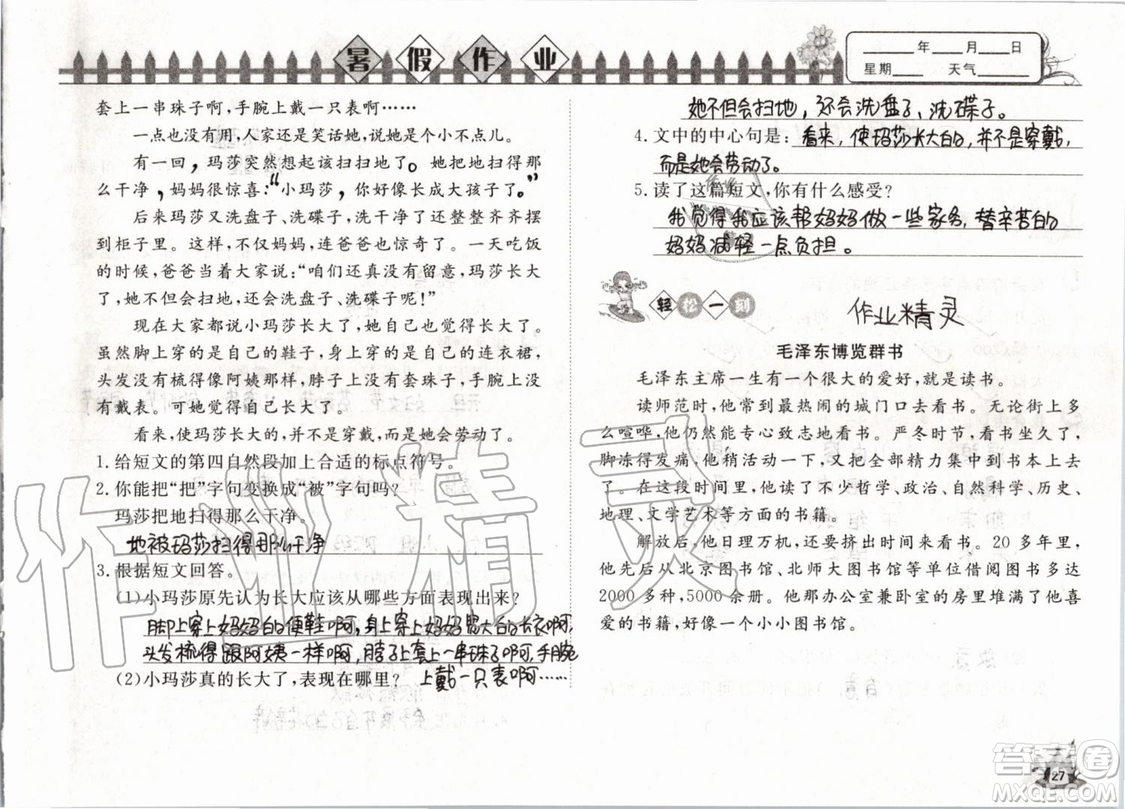 暑假作业
____年____月____日
星期____ 天气____
套上一串珠子啊,手腕上戴一只表啊……
一点也没有用,人家还是笑话她,说她是个小不点儿。
有一回,玛莎突然扫扫地了。她把地扫得那么干净,妈妈很惊喜:“小玛莎,你好像长成大孩子了。”
后来玛莎又洗盘子、洗碟子,洗干净了还整整齐齐摆到柜子里。这样,不仅妈妈,连爸爸也惊奇了。一天吃饭的时候,爸爸当着大家说:“咱们还真没有留意,玛莎长大了,不但会扫地,还会洗盘子、洗碟子呢!”
现在大家都说小玛莎长大了,她自己也觉得长大了。
虽然脚上穿的是自己的鞋子,身上穿的是自己的连衣裙,
头发没有梳得像阿姨那样,脖子上没有套珠子,手腕上
没有戴表。可她觉得自己长大了。
看来,使玛莎长大的,并不是穿戴,而是她会劳动了。
1. 给短文的第四自然段加上合适的标点符号。
2. 你能把“把”字句变换成“被”字句吗?
玛莎把地扫得那么干净。
地被玛莎扫得那么干净
3. 根据短文回答。
(1)小玛莎原先认为长大应该从哪些方面表现出来?
脚上穿上妈妈的便鞋啊,身上穿上妈妈宽大的长衣啊,
头发梳得跟阿姨一样啊,脖子上套上一串珠子啊,手腕
(2)小玛莎真的长大了,表现在哪里? 上戴一只表啊……
她不但会扫地,还会洗盘子、洗碟子。
4. 文中的中心句是:看来,使玛莎长大的,并不是穿戴,
而是她会劳动了。
5. 读了这篇短文,你有什么感受?
我觉得我应该帮妈妈做一些家务,替辛苦的
妈妈减轻一点负担。
轻松一刻
作业精灵
毛泽东博览群书
毛泽东主席一生有一个很大的爱好,就是读书。
读师范时,他常到最热闹的城门口去看书。无论街上多
么喧哗,他仍然能专心致志地看书。严冬时节,看书坐久了,
脚冻得发痛,他稍活动一下,又把全部精力集中到书本上去
了。在这段时间里,他读了不少哲学、政治、自然科学、历史、
地理、文学艺术等方面的书籍。
解放后,他日理万机,还要挤出时间来看书。20 多年里,
他先后从北京图书馆、北师大图书馆等单位借阅图书多达
2000 多种,5000 余册。他那办公室兼卧室的房里堆满了他喜
爱的书籍,好像一个小小图书馆。
作业精灵
答案圈
MXQE.COM
27